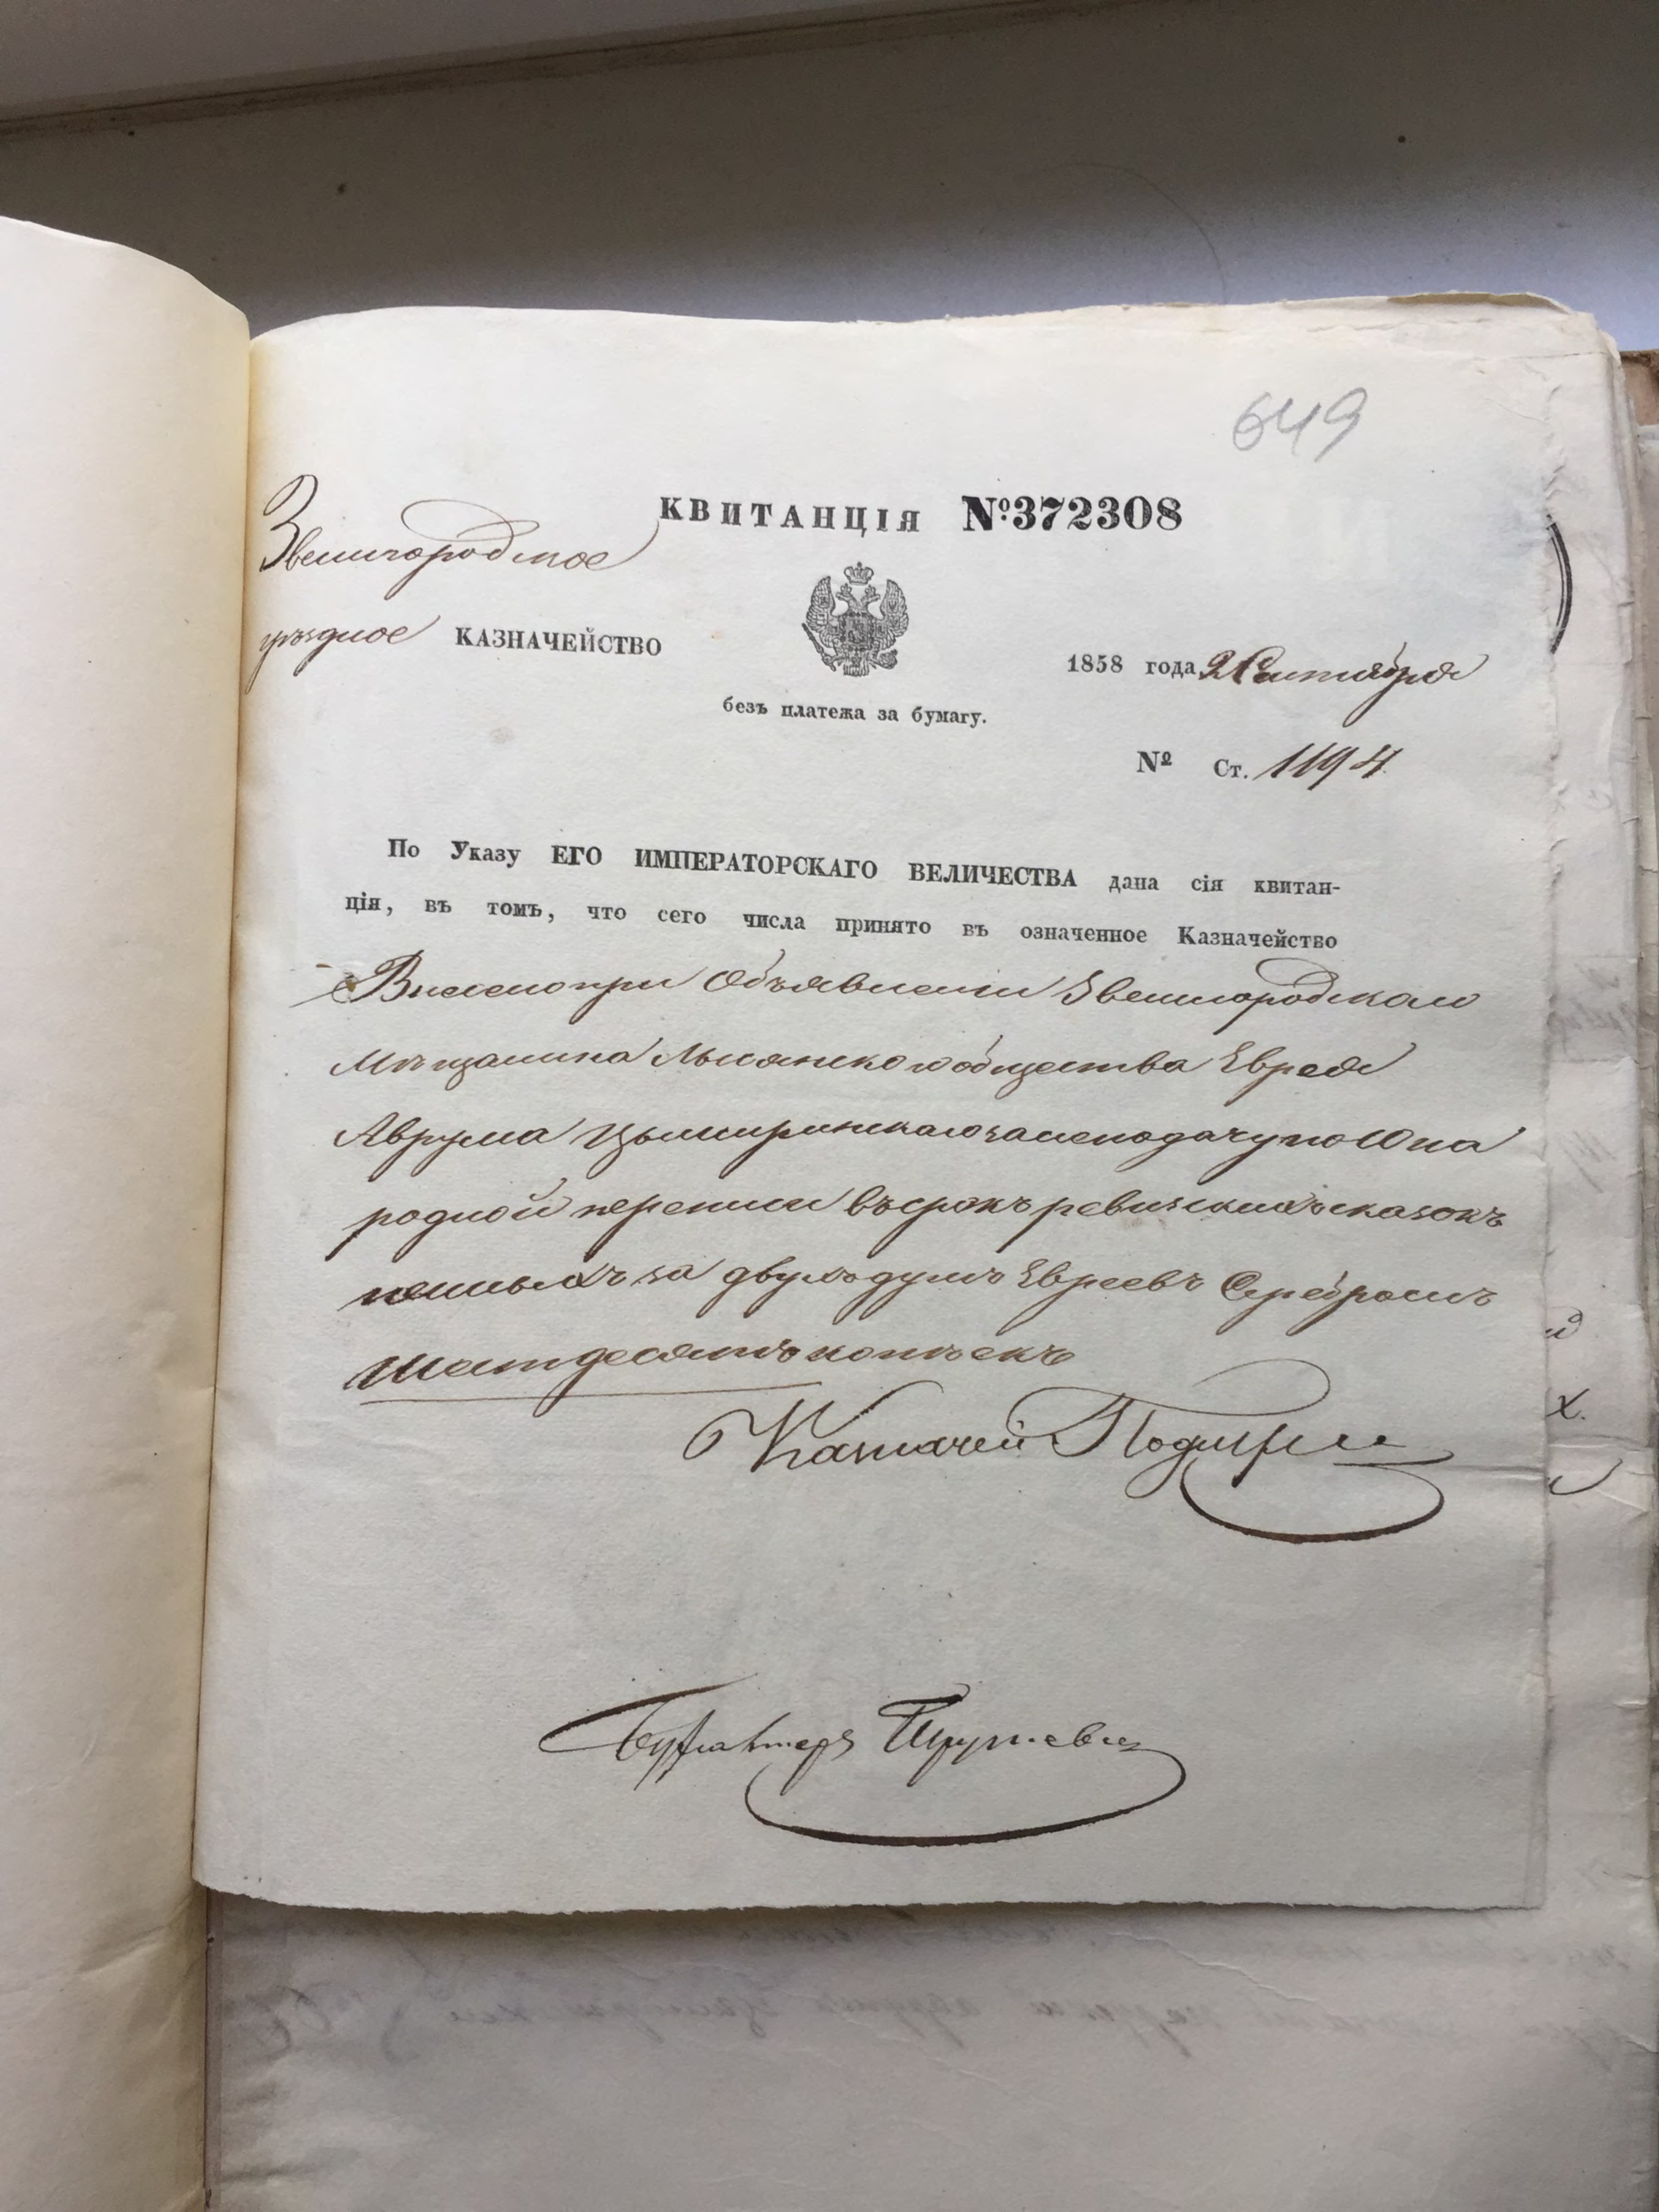 649
КВИТАНЦІЯ №372308
Звенигородское
уѣздное КАЗНАЧЕЙСТВО
1858 года 2 Сентября
безъ платежа за бумагу.
№ Ст. 1194
По Указу ЕГО ИМПЕРАТОРСКАГО ВЕЛИЧЕСТВА дана сія квитан-
ція, въ томъ, что сего числа принято въ означенное Казначейство
Внесено при Объявленіи Звенигородскаго
Мѣщанина Лысянскаго общества Еврея
Аврума за неподачу по 10 на
родной переписи въ срокъ ревизскихъ сказокъ
за двухъ душъ Евреевъ Серебромъ
Шестдесятъ копѣекъ
Казначей
Бухгалтеръ